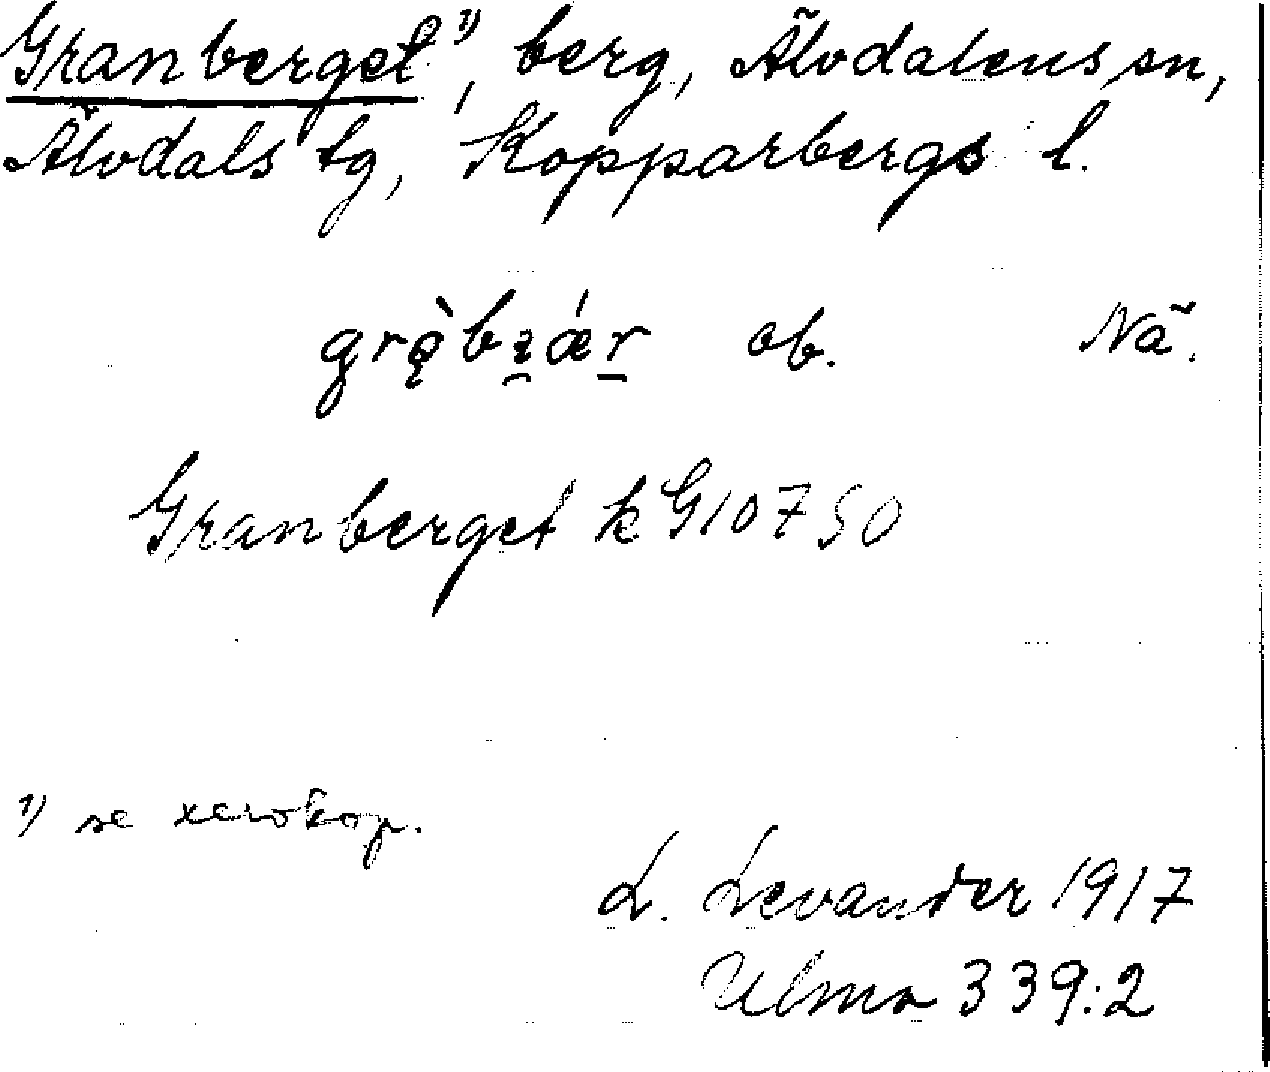 Granberget ¹⁾, berg, Älvdalens sn,
Älvdals tg, Kopparbergs l.
ob. Nä.
Granberget k G10750
¹⁾ se xerokop.
L. Levander 1917
Ulma 339:2